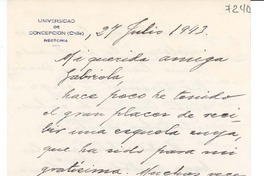 7240
UNIVERSIDAD
DE
CONCEPCION (Chile)
RECTORIA
, 27 Julio 1943.
Mi querida amiga
Gabriela:
hace poco he tenido
el gran placer de reci-
bir una esquela suya,
que ha sido para mi
gratísima. Muchas vece